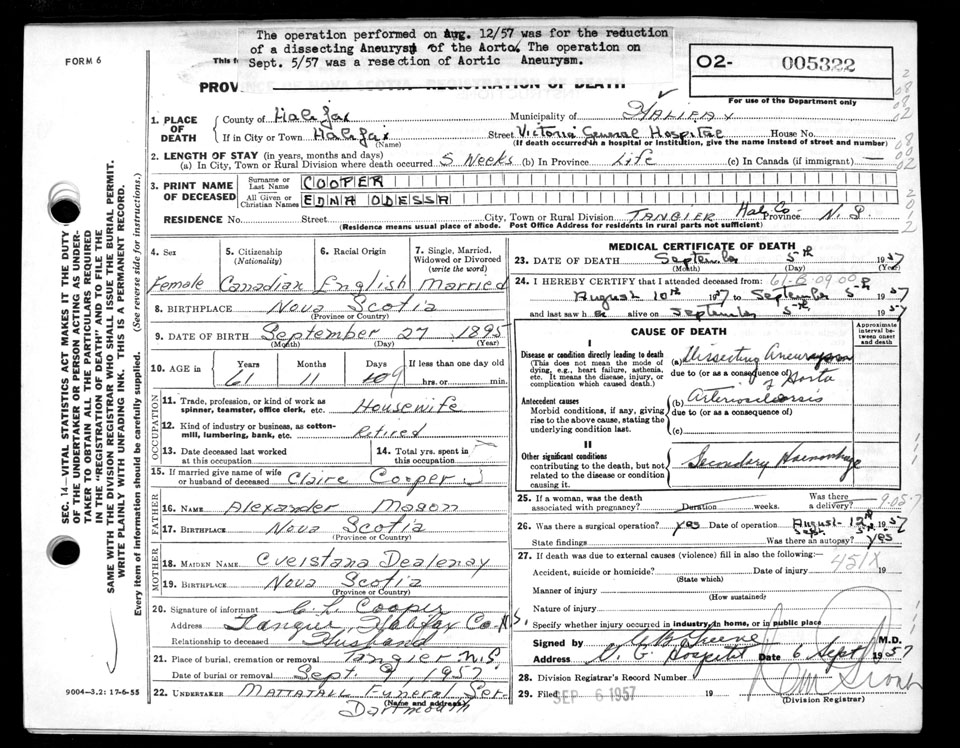 The operation performed on Aug. 12/57 was for the reduction
of a dissecting Aneurysm of the Aorta. The operation on
Sept. 5/57 was a resection of Aortic Aneurysm.
FORM 6
This f
PROV REGISTRATION OF DEATH
O2- 005322
For use of the Department only
1. PLACE OF DEATH
County of Halifax
Municipality of HALIFAX
If in City or Town Halifax
(Name)
Street Victoria General Hospital House No.
(If death occurred in a hospital or institution, give the name instead of street and number)
2. LENGTH OF STAY (in years, months and days)
(a) In City, Town or Rural Division where death occurred 5 Weeks (b) In Province Life (c) In Canada (if immigrant) —
3. PRINT NAME OF DECEASED
Surname or Last Name COOPER
All Given or Christian Names EDNA ODESSA
RESIDENCE No. Street City, Town or Rural Division TANGIER Hal. Co. Province N.S.
(Residence means usual place of abode. Post Office Address for residents in rural parts not sufficient)
SEC. 14—VITAL STATISTICS ACT MAKES IT THE DUTY
OF THE UNDERTAKER OR PERSON ACTING AS UNDER-
TAKER TO OBTAIN ALL THE PARTICULARS REQUIRED
IN THE "REGISTRATION OF DEATH" AND TO FILE THE
SAME WITH THE DIVISION REGISTRAR WHO SHALL ISSUE THE BURIAL PERMIT.
WRITE PLAINLY WITH UNFADING INK. THIS IS A PERMANENT RECORD.
Every item of information should be carefully supplied. (See reverse side for instructions.)
4. Sex
Female
5. Citizenship
(Nationality)
Canadian
6. Racial Origin
English
7. Single, Married,
Widowed or Divorced
(write the word)
Married
8. BIRTHPLACE Nova Scotia
(Province or Country)
9. DATE OF BIRTH September 27 1895
(Month) (Day) (Year)
10. AGE in
Years Months Days If less than one day old
61 11 hrs. or min.
OCCUPATION
11. Trade, profession, or kind of work as
spinner, teamster, office clerk, etc. Housewife
12. Kind of industry or business, as cotton-
mill, lumbering, bank, etc. Retired
13. Date deceased last worked
at this occupation
14. Total yrs. spent in
this occupation
15. If married give name of wife
or husband of deceased Claire Cooper
FATHER
16. NAME Alexander Mason
17. BIRTHPLACE Nova Scotia
(Province or Country)
MOTHER
18. MAIDEN NAME
19. BIRTHPLACE Nova Scotia
(Province or Country)
20. Signature of informant C. L. Cooper
Address Tangier, Halifax Co. N.S.
Relationship to deceased Husband
21. Place of burial, cremation or removal Tangier N.S.
Date of burial or removal Sept. 9, 1957
22. UNDERTAKER Mattatall Funeral Ser.
(Name and address)
Dartmouth
9004-3.2: 17-6-55
MEDICAL CERTIFICATE OF DEATH
23. DATE OF DEATH September 5th 1957
(Month) (Day) (Year)
24. I HEREBY CERTIFY that I attended deceased from: 61-B-0900
August 10th 1957 to September 5th 1957
and last saw h er alive on September 5th, 1957
CAUSE OF DEATH
Approximate interval between onset and death
I
Disease or condition directly leading to death
(This does not mean the mode of
dying, e.g., heart failure, asthenia,
etc. It means the disease, injury, or
complication which caused death.)
(a) Dissecting Aneurysm
due to (or as a consequence of)
of Aorta
Antecedent causes
Morbid conditions, if any, giving
rise to the above cause, stating the
underlying condition last.
(b) Arteriosclerosis
due to (or as a consequence of)
(c)
II
Other significant conditions
contributing to the death, but not
related to the disease or condition
causing it.
Secondary Haemorrhage
25. If a woman, was the death
associated with pregnancy? Duration weeks. Was there
a delivery?
26. Was there a surgical operation? Yes Date of operation August 12th 1957
Sept. 5th
State findings Was there an autopsy? Yes
27. If death was due to external causes (violence) fill in also the following:—
451X
Accident, suicide or homicide? Date of injury 19
(State which)
Manner of injury
(How sustained)
Nature of injury
Specify whether injury occurred in industry, in home, or in public place
Signed by Greene M.D.
Address V. G. Hospital Date 6 Sept 1957
28. Division Registrar's Record Number
29. Filed SEP 6 1957 19
(Division Registrar)